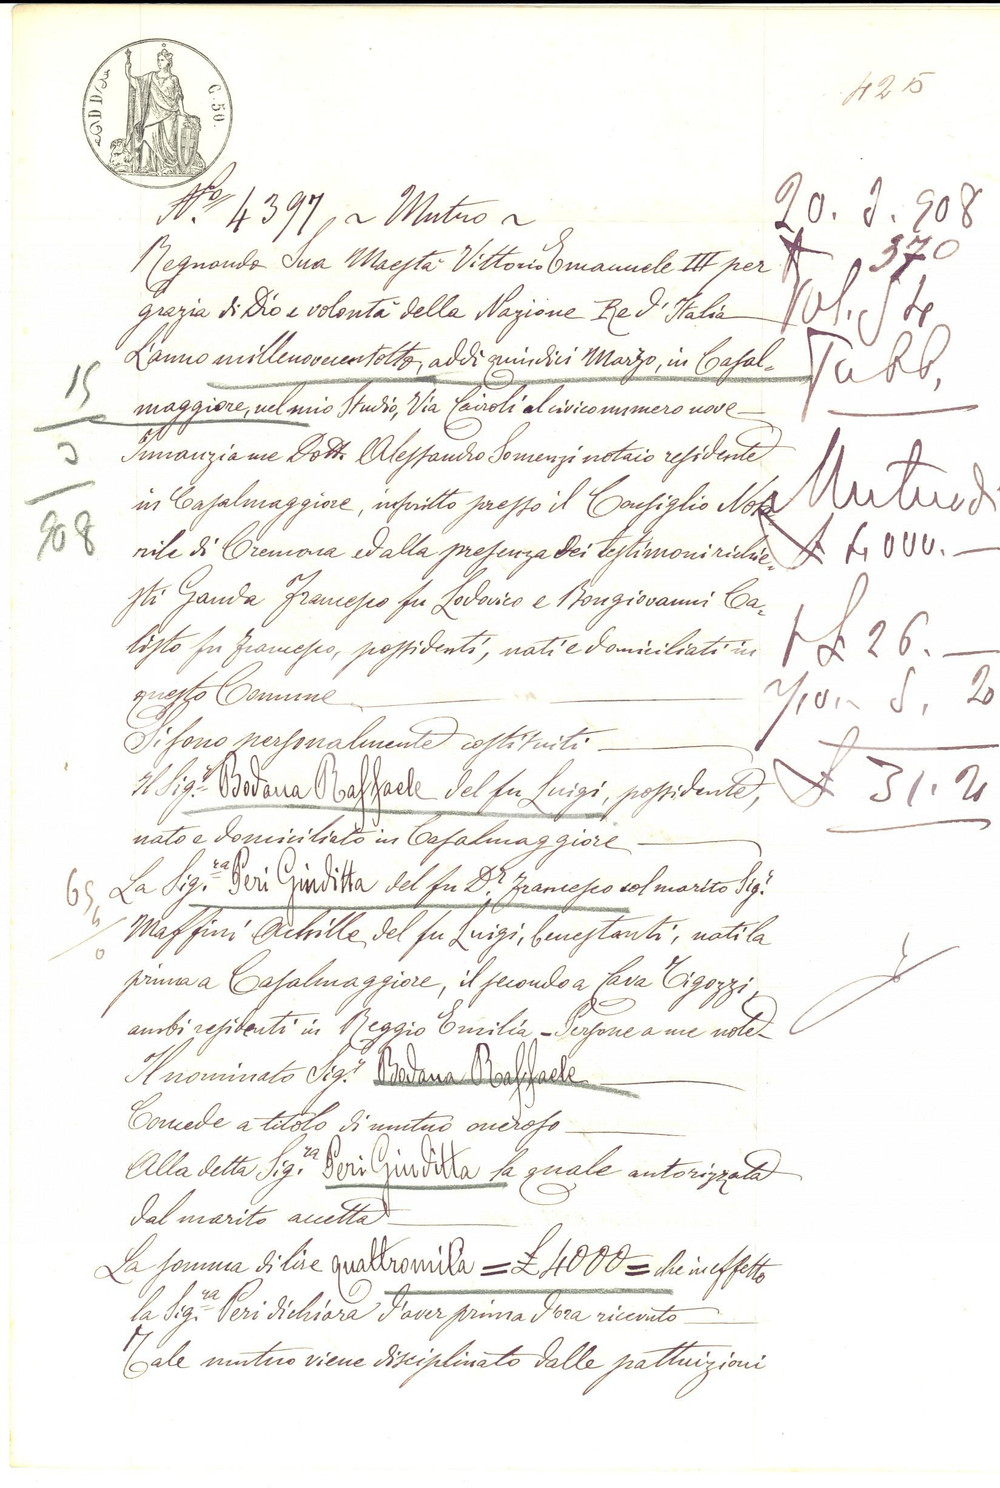 425
C. 50.
N.º 4397 ~ Mutuo ~
Regnando Sua Maestà Vittorio Emanuele III per
grazia di Dio e volontà della Nazione Re d'Italia
L'anno millenovecentotto, addì quindici Marzo, in Casal=
maggiore, nel mio Studio, Via Cairoli al civico numero nove
Innanzi a me Dott. Alessandro Somenzi notaio residente
in Casalmaggiore, inscritto presso il Consiglio Nota=
rile di Cremona ed alla presenza dei testimoni richie=
sti Ganda Francesco fu Lodovico e Bongiovanni Ca=
listo fu Francesco, possidenti, nati e domiciliati in
questo Comune
Si sono personalmente costituiti
Il Sig.r Bodana Raffaele del fu Luigi, possidente,
nato e domiciliato in Casalmaggiore
La Sig.ra Peri Giuditta del fu D.r Francesco col marito Sig.r
Maffini Achille del fu Luigi, benestanti, nati la
prima a Casalmaggiore, il secondo a Cava Tigozzi,
ambi residenti in Reggio Emilia - Persone a me note
Il nominato Sig.r Bodana Raffaele
Concede a titolo di mutuo oneroso
Alla detta Sig.ra Peri Giuditta la quale autorizzata
dal marito accetta
La somma di lire quattromila = £ 4000 = che in effetto
la Sig.ra Peri dichiara d'aver prima d'ora ricevuto
Tale mutuo viene disciplinato dalle pattuizioni
15
3
908
20. 3. 908
370
Vol. 54
Tabb.
Mutuo di
£ 4000.
£ 26.
5. 20
£ 31. 20